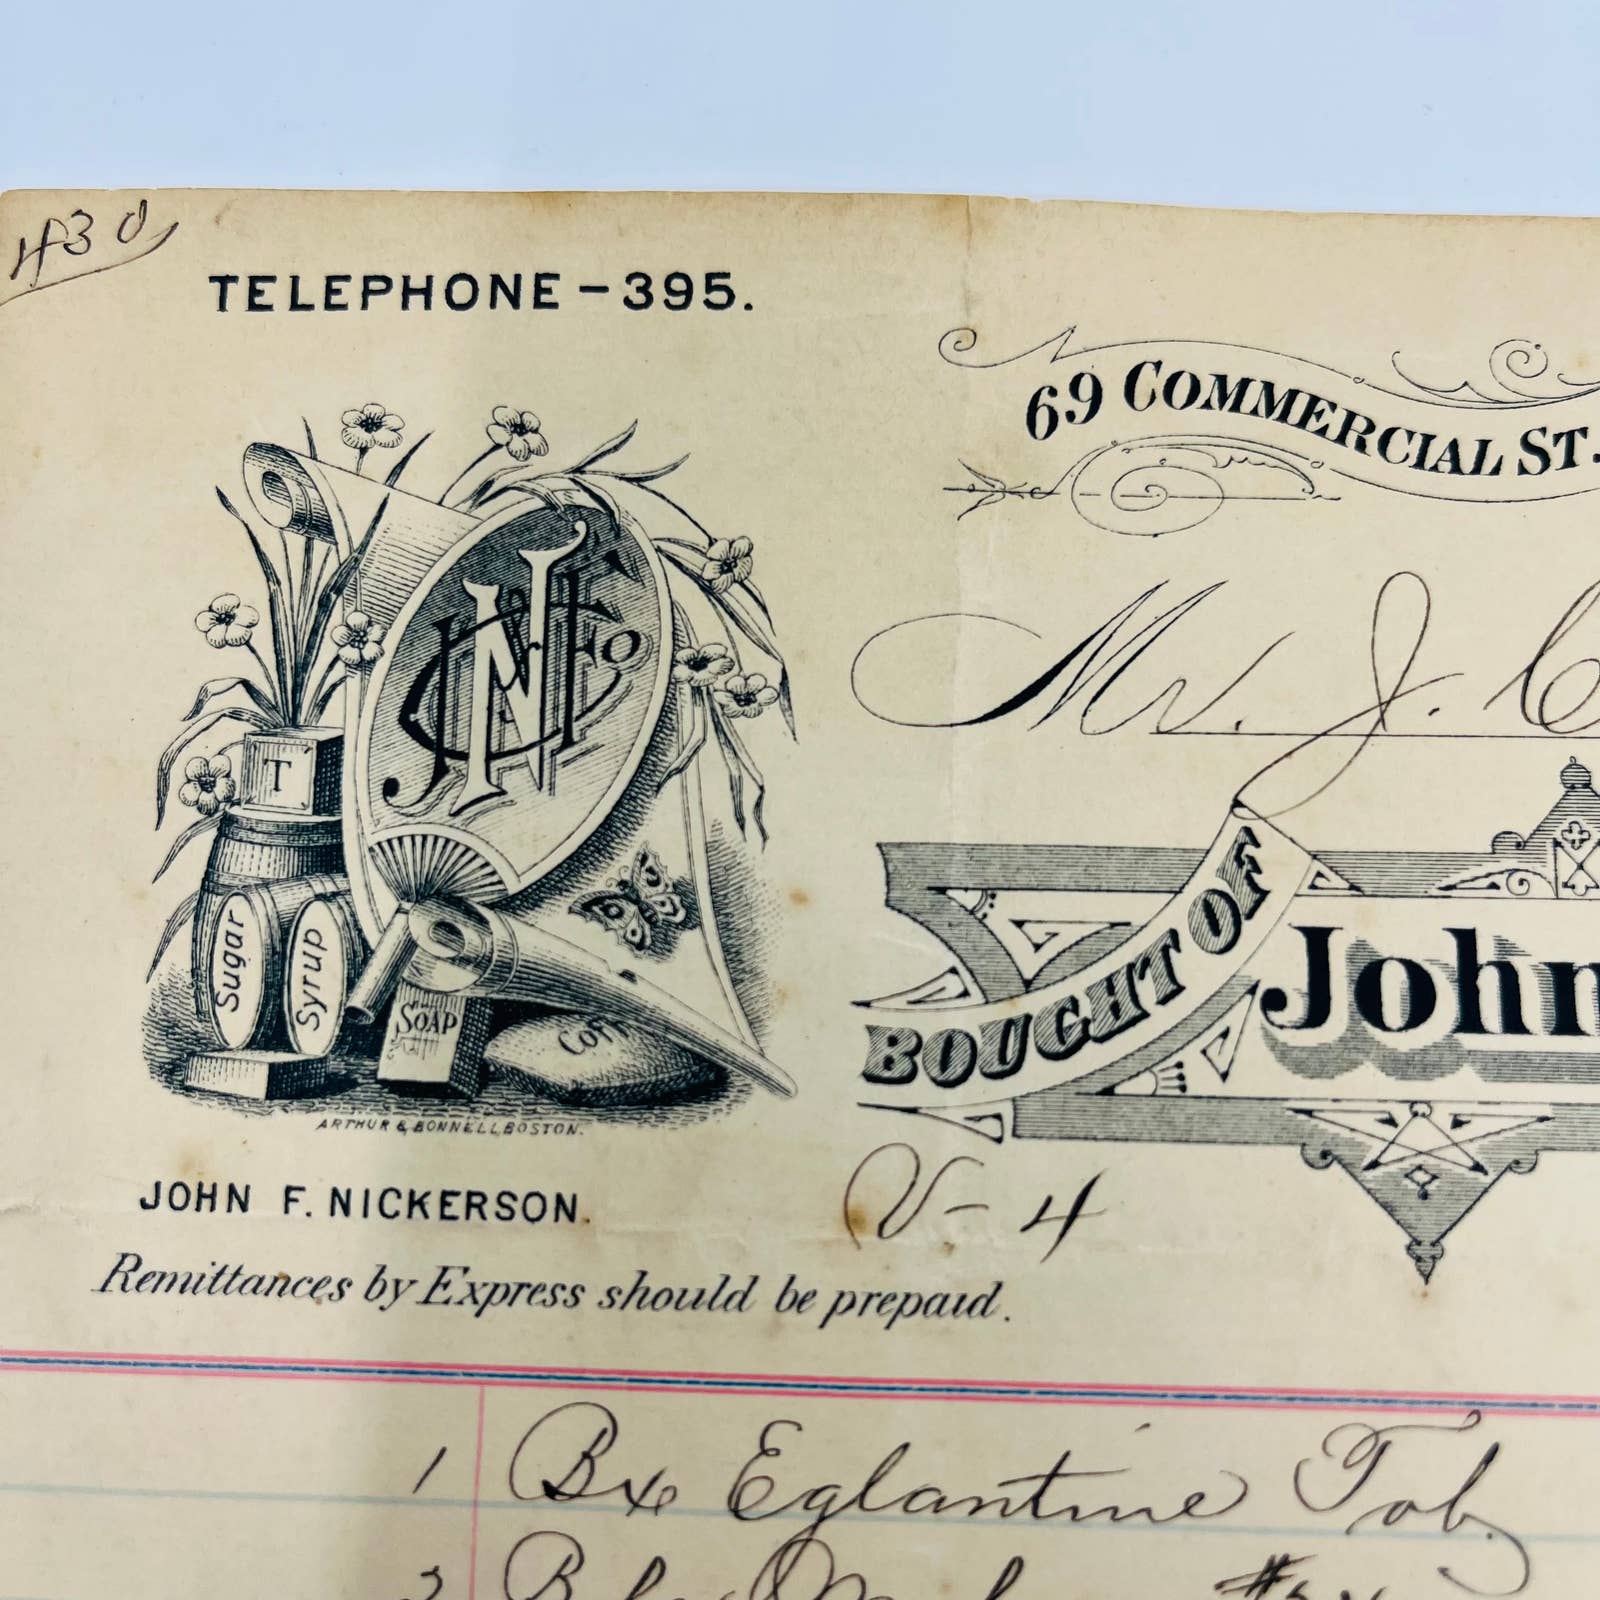 430
TELEPHONE - 395.
69 COMMERCIAL ST.
JNF & Co
Mr. J. C
T
BOUGHT OF
John
Sugar
Syrup
SOAP
Coff
ARTHUR & BONNELL, BOSTON.
V- 4
JOHN F. NICKERSON.
Remittances by Express should be prepaid.
1 Bx Eglantine Tob.
2